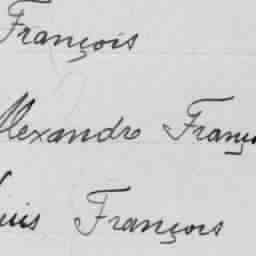 François
Alexandre Franç
uis François